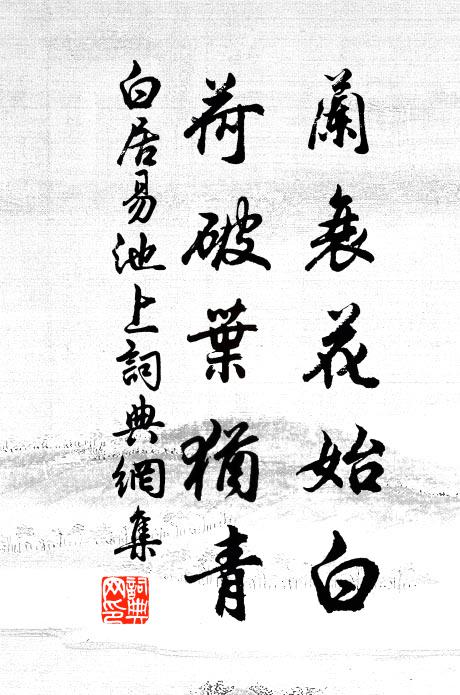 蘭衰花始白
荷破葉猶青
白居易池上詞典網集
詞典网印